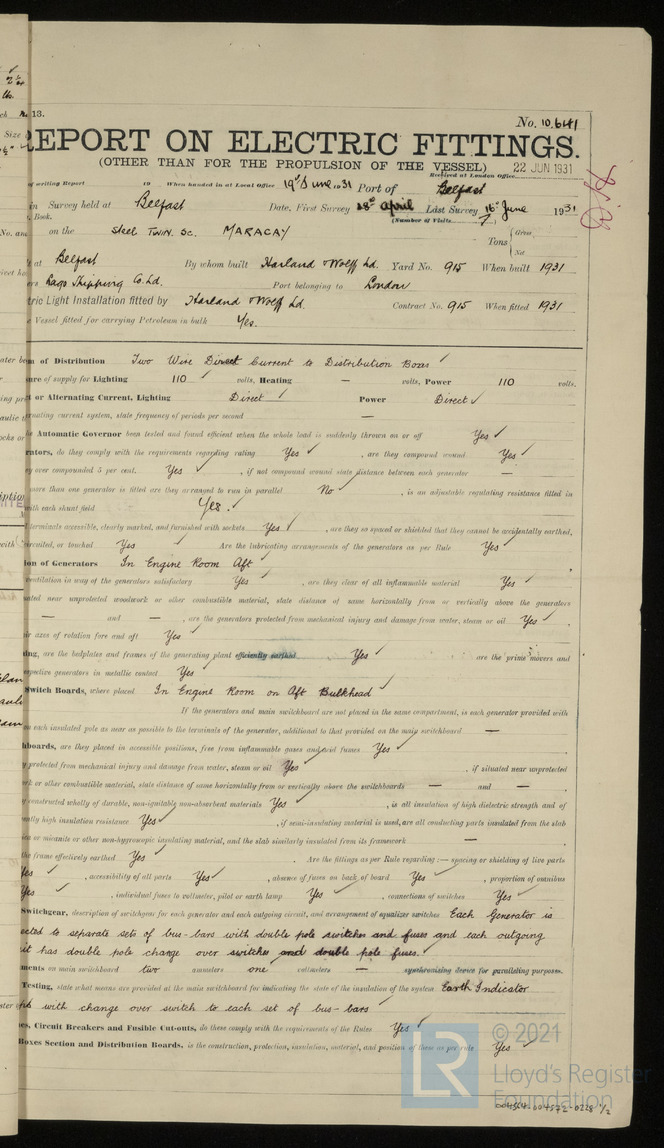 13.
No. 10,641
REPORT ON ELECTRIC FITTINGS.
(OTHER THAN FOR THE PROPULSION OF THE VESSEL)
Received at London Office 22 JUN 1931
of writing Report 19 When handed in at Local Office 19th June 1931 Port of Belfast
in Survey held at Belfast Date, First Survey 28th April Last Survey 16th June 1931
Book. (Number of Visits 7)
on the Steel Twin Sc. MARACAY Tons {Gross Net
at Belfast By whom built Harland & Wolff Ld. Yard No. 915 When built 1931
ers Lago Shipping Co. Ld. Port belonging to London
tric Light Installation fitted by Harland & Wolff Ld. Contract No. 915 When fitted 1931
e Vessel fitted for carrying Petroleum in bulk Yes.
em of Distribution Two Wire Direct Current to Distribution Boxes
ure of supply for Lighting 110 volts, Heating — volts, Power 110 volts.
t or Alternating Current, Lighting Direct Power Direct
rnating current system, state frequency of periods per second —
e Automatic Governor been tested and found efficient when the whole load is suddenly thrown on or off Yes
rators, do they comply with the requirements regarding rating Yes , are they compound wound Yes
y over compounded 5 per cent. Yes , if not compound wound state distance between each generator —
more than one generator is fitted are they arranged to run in parallel No , is an adjustable regulating resistance fitted in
with each shunt field Yes.
l terminals accessible, clearly marked, and furnished with sockets Yes , are they so spaced or shielded that they cannot be accidentally earthed,
circuited, or touched Yes Are the lubricating arrangements of the generators as per Rule Yes
ion of Generators In Engine Room Aft
ventilation in way of the generators satisfactory Yes , are they clear of all inflammable material Yes
ated near unprotected woodwork or other combustible material, state distance of same horizontally from or vertically above the generators
— and — , are the generators protected from mechanical injury and damage from water, steam or oil Yes
ir axes of rotation fore and aft Yes
ing, are the bedplates and frames of the generating plant efficiently earthed Yes are the prime movers and
espective generators in metallic contact Yes
Switch Boards, where placed In Engine Room on Aft Bulkhead
If the generators and main switchboard are not placed in the same compartment, is each generator provided with
on each insulated pole as near as possible to the terminals of the generator, additional to that provided on the main switchboard —
hboards, are they placed in accessible positions, free from inflammable gases and acid fumes Yes
y protected from mechanical injury and damage from water, steam or oil Yes , if situated near unprotected
rk or other combustible material, state distance of same horizontally from or vertically above the switchboards — and —
y constructed wholly of durable, non-ignitable non-absorbent materials Yes , is all insulation of high dielectric strength and of
ently high insulation resistance Yes , if semi-insulating material is used, are all conducting parts insulated from the slab
ica or micanite or other non-hygroscopic insulating material, and the slab similarly insulated from its framework —
the frame effectively earthed Yes Are the fittings as per Rule regarding :— spacing or shielding of live parts
Yes , accessibility of all parts Yes , absence of fuses on back of board Yes , proportion of omnibus
Yes , individual fuses to voltmeter, pilot or earth lamp Yes , connections of switches Yes
Switchgear, description of switchgear for each generator and each outgoing circuit, and arrangement of equalizer switches Each Generator is
ected to separate sets of bus-bars with double pole switches and fuses and each outgoing
it has double pole change over switches and double pole fuses.
ments on main switchboard two ammeters one voltmeters — synchronising device for paralleling purposes.
Testing, state what means are provided at the main switchboard for indicating the state of the insulation of the system Earth Indicator
with change over switch to each set of bus-bars
es, Circuit Breakers and Fusible Cut-outs, do these comply with the requirements of the Rules Yes
Boxes Section and Distribution Boards, is the construction, protection, insulation, material, and position of these as per rule Yes
LR
© 2021
Lloyd's Register
Foundation
004564-004572-0228 1/2